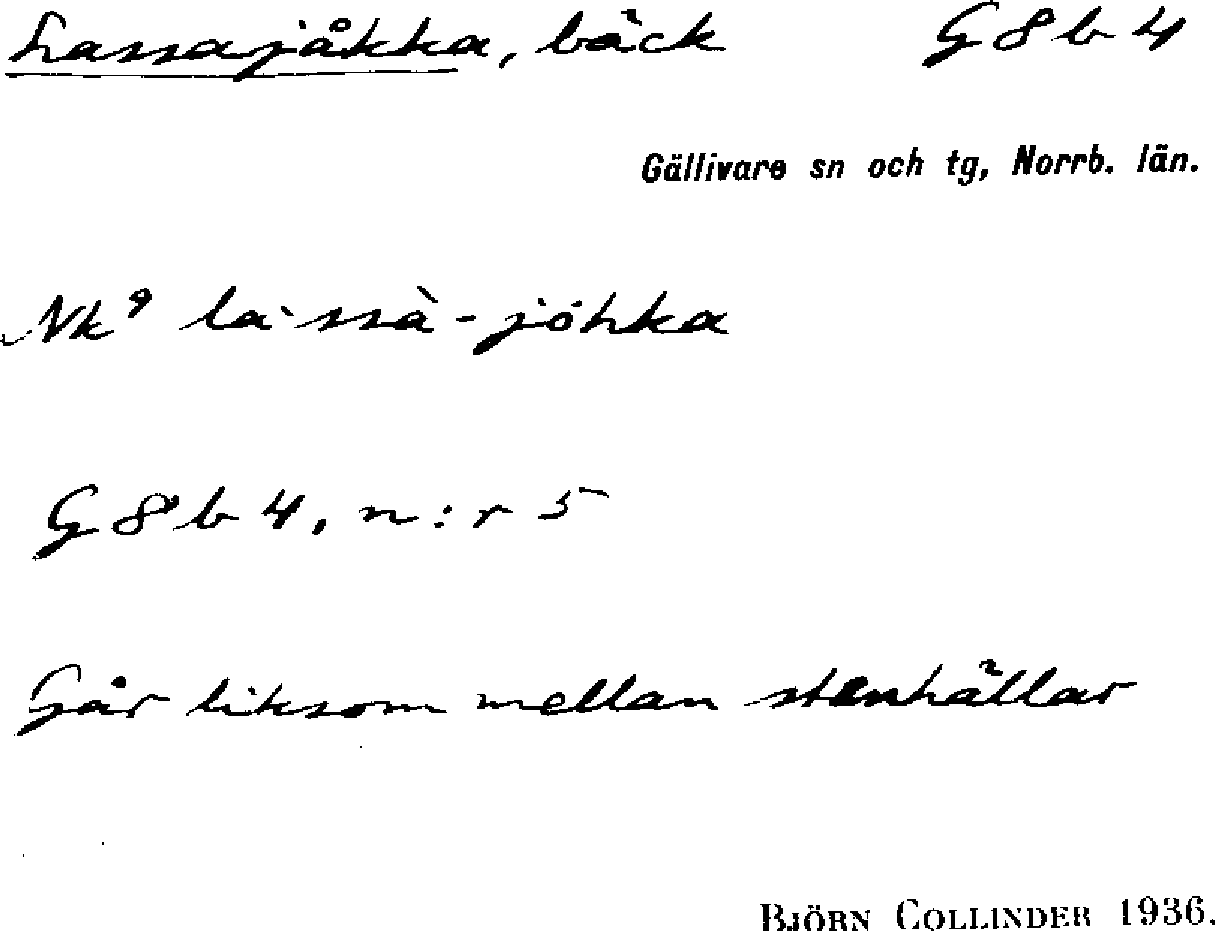 Lassajåkka, bäck G8b4
Gällivare sn och tg, Norrb. län.
Nk⁹ la`ssà-jóhka
G8b4, n:r 5
Går liksom mellan stenhällar
BJÖRN COLLINDER 1936.